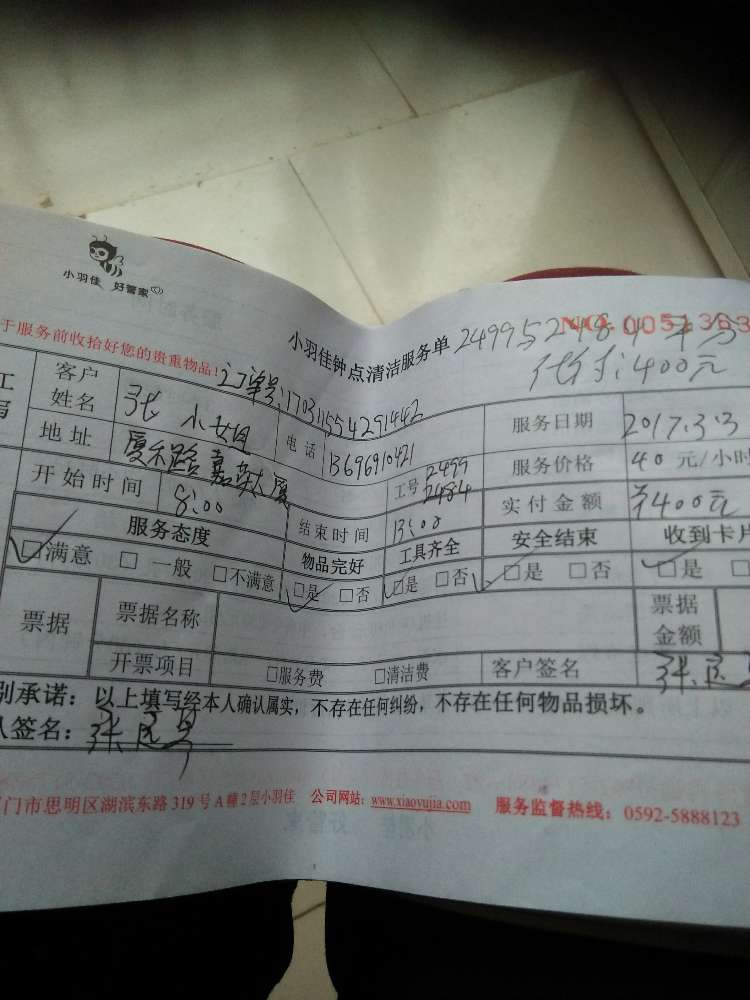 小羽佳 好管家
于服务前收拾好您的贵重物品！
小羽佳钟点清洁服务单
NO. 0051363
代付:400元
订单号:170311554291442
客户姓名 张小姐 电话 13696910421 服务日期 2017.3.3
地址 厦禾路嘉英大厦 工号 2499 2484 服务价格 40元/小时
开始时间 8:00 结束时间 13:00 实付金额 ¥400元
服务态度 物品完好 工具齐全 安全结束 收到卡片
☑满意 □一般 □不满意 ☑是 □否 ☑是 □否 ☑是 □否 ☑是 □
票据 票据名称 票据金额
开票项目 □服务费 □清洁费 客户签名
别承诺：以上填写经本人确认属实，不存在任何纠纷，不存在任何物品损坏。
人签名：
门市思明区湖滨东路319号A幢2层小羽佳 公司网站：www.xiaoyujia.com 服务监督热线：0592-5888123